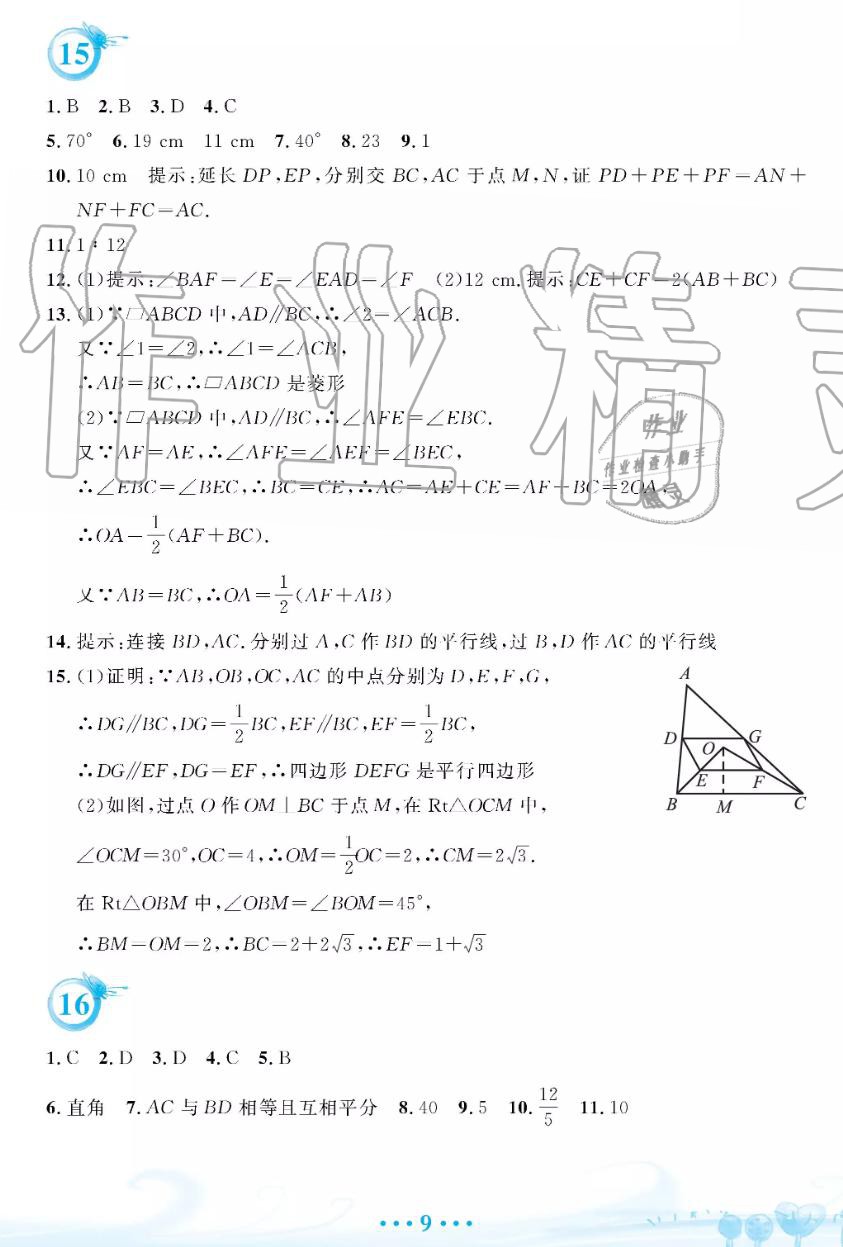 15
1. B  2. B  3. D  4. C
5. 70°  6. 19 cm  11 cm  7. 40°  8. 23  9. 1
10. 10 cm  提示:延长 DP,EP,分别交 BC,AC 于点 M,N,证 PD+PE+PF=AN+
NF+FC=AC.
11. 1∶12
12. (1)提示:∠BAF=∠E=∠EAD=∠F  (2)12 cm. 提示:CE+CF=2(AB+BC)
13. (1)∵▱ABCD 中,AD∥BC,∴∠2=∠ACB.
又∵∠1=∠2,∴∠1=∠ACB,
∴AB=BC,∴▱ABCD 是菱形
(2)∵▱ABCD 中,AD∥BC,∴∠AFE=∠EBC.
又∵AF=AE,∴∠AFE=∠AEF=∠BEC,
∴∠EBC=∠BEC,∴BC=CE,∴AC=AE+CE=AF+BC=2OA,
∴OA=1/2(AF+BC).
又∵AB=BC,∴OA=1/2(AF+AB)
14. 提示:连接 BD,AC. 分别过 A,C 作 BD 的平行线,过 B,D 作 AC 的平行线
15. (1)证明:∵AB,OB,OC,AC 的中点分别为 D,E,F,G,
∴DG∥BC,DG=1/2BC,EF∥BC,EF=1/2BC,
∴DG∥EF,DG=EF,∴四边形 DEFG 是平行四边形
(2)如图,过点 O 作 OM⊥BC 于点 M,在 Rt△OCM 中,
∠OCM=30°,OC=4,∴OM=1/2OC=2,∴CM=2√3.
在 Rt△OBM 中,∠OBM=∠BOM=45°,
∴BM=OM=2,∴BC=2+2√3,∴EF=1+√3
A
D G
O
E F
B M C
16
1. C  2. D  3. D  4. C  5. B
6. 直角  7. AC 与 BD 相等且互相平分  8. 40  9. 5  10. 12/5  11. 10
••• 9 •••
作业精灵
作业
作业检查小助手
精灵